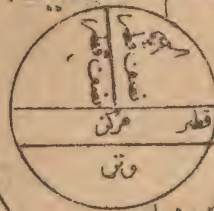 نصف قطر
نصف قطر
مرکز
قطر
وتر